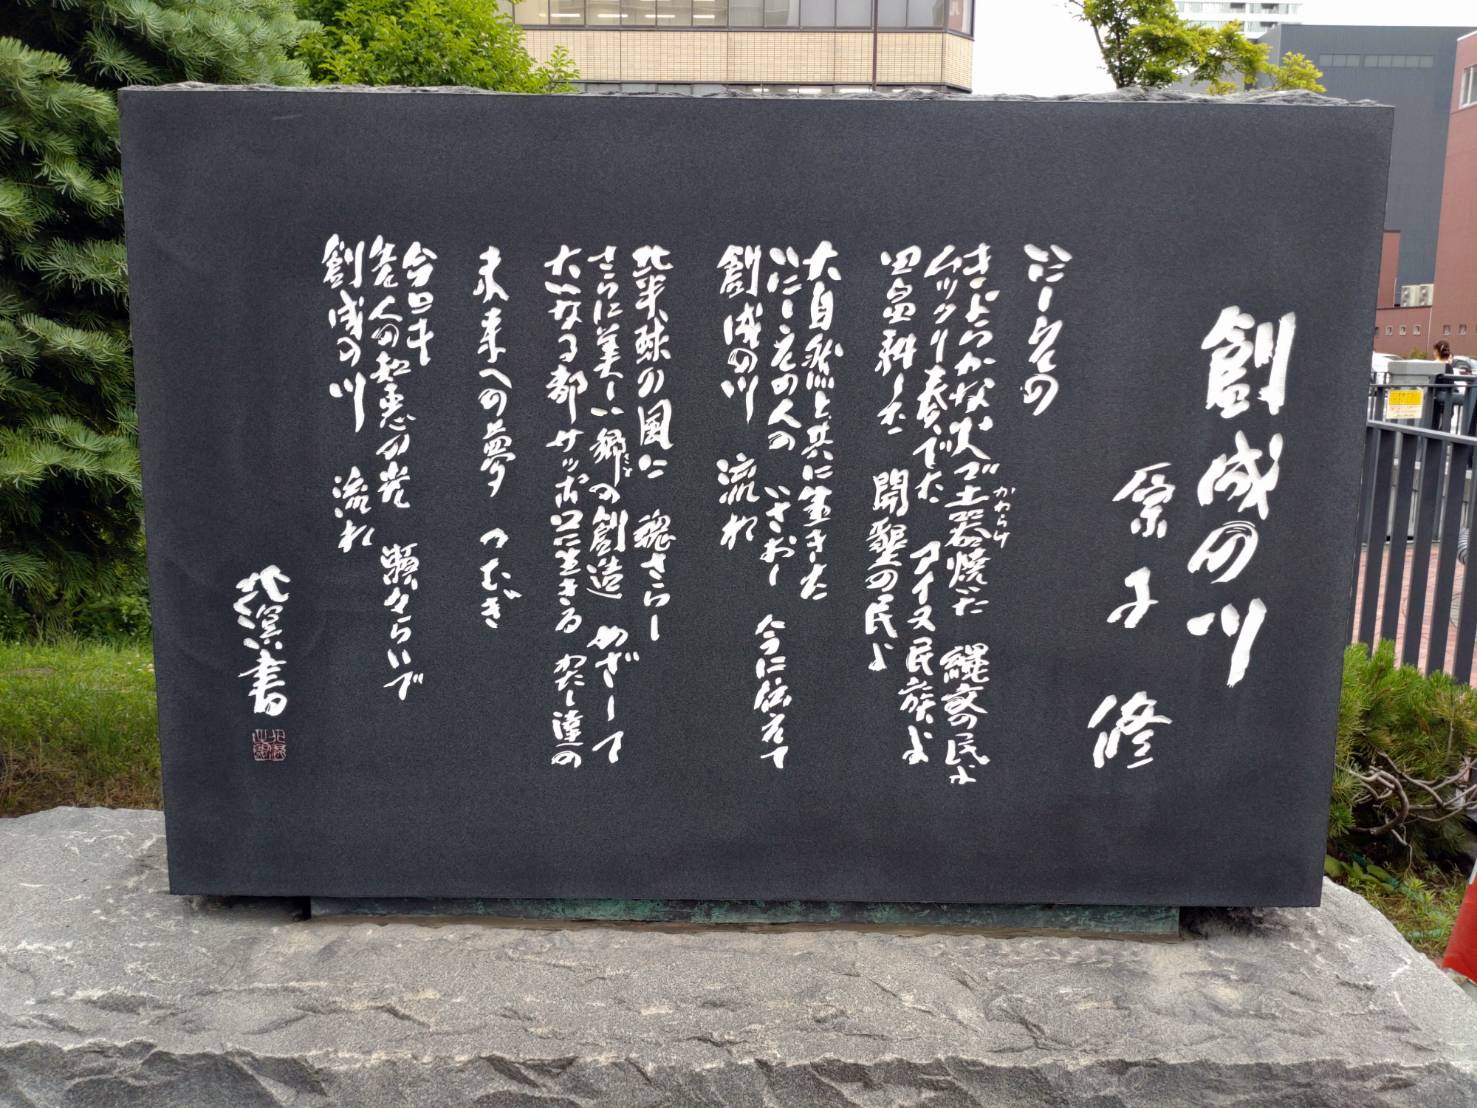 創成の川
原子 修
いにしえの
きよらかな火で土器焼いた 縄文の民よ
かわらけ
ムックリ奏でた アイヌ民族よ
田畠耕した 開墾の民よ
大自然と共に生きた
いにしえの人の いさおし 今に伝えて
創成の川 流れ
北半球の風に 魂さらし
さらに美しい郷の創造 めざして
さと
大いなる都サッポロに生きる わたし達の
未来への夢 つむぎ
今日も
先人の知恵の光 瀬々らいで
創成の川 流れ
北溟書